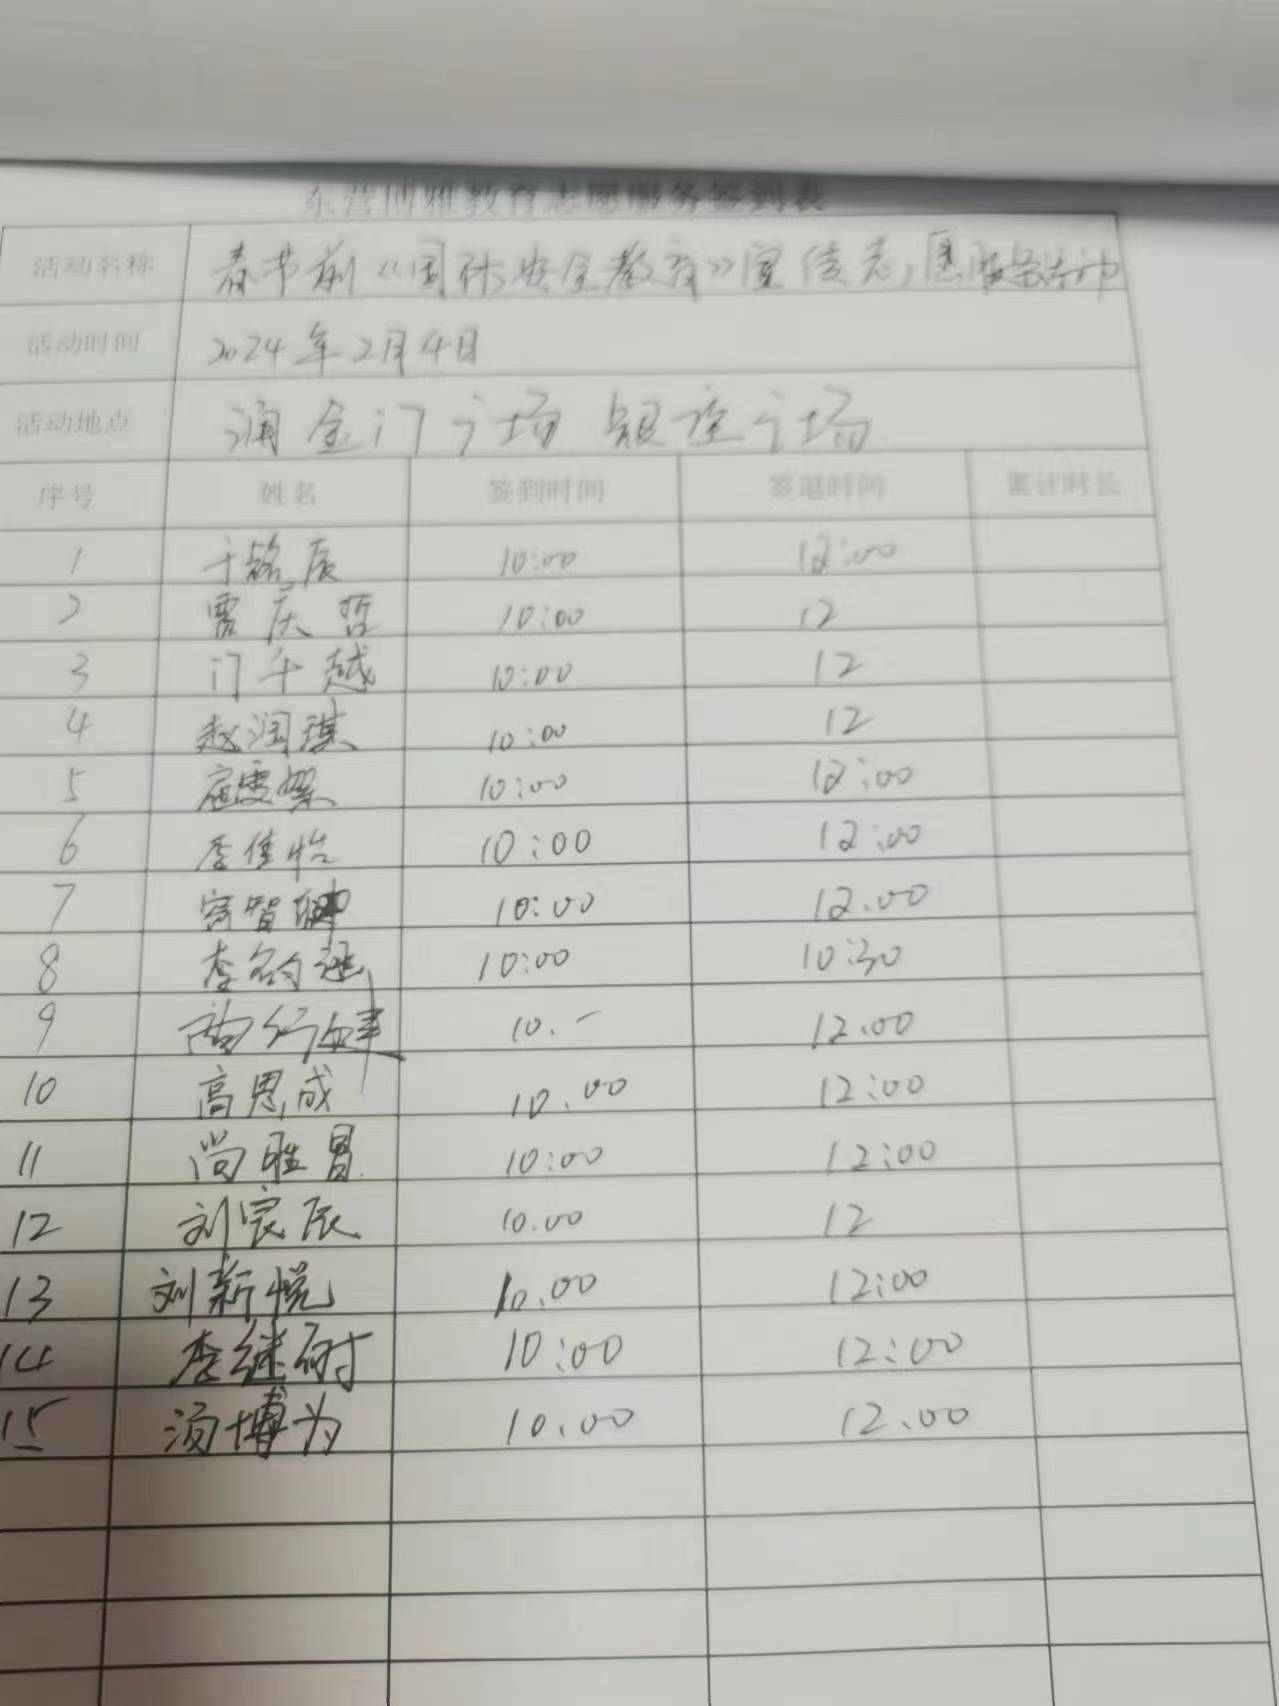 东营博雅教育志愿服务签到表
活动名称 春节前《国标安全教育》宣传志愿服务活动
活动时间 2024年2月4日
活动地点 润金门广场 银座广场
序号 姓名 签到时间 签退时间 累计时长
1 于铭辰 10:00 12:00
2 庆哲 10:00 12
3 门千越 10:00 12
4 赵润琪 10:00 12
5 10:00 12:00
6 李佳怡 10:00 12:00
7 智 10:00 12.00
8 李 10:00 10:30
9 行健 10.- 12.00
10 高思成 10.00 12:00
11 尚胜 10:00 12:00
12 刘宸辰 10.00 12
13 刘新悦 10.00 12:00
14 李继耐 10:00 12:00
15 汤博为 10.00 12.00